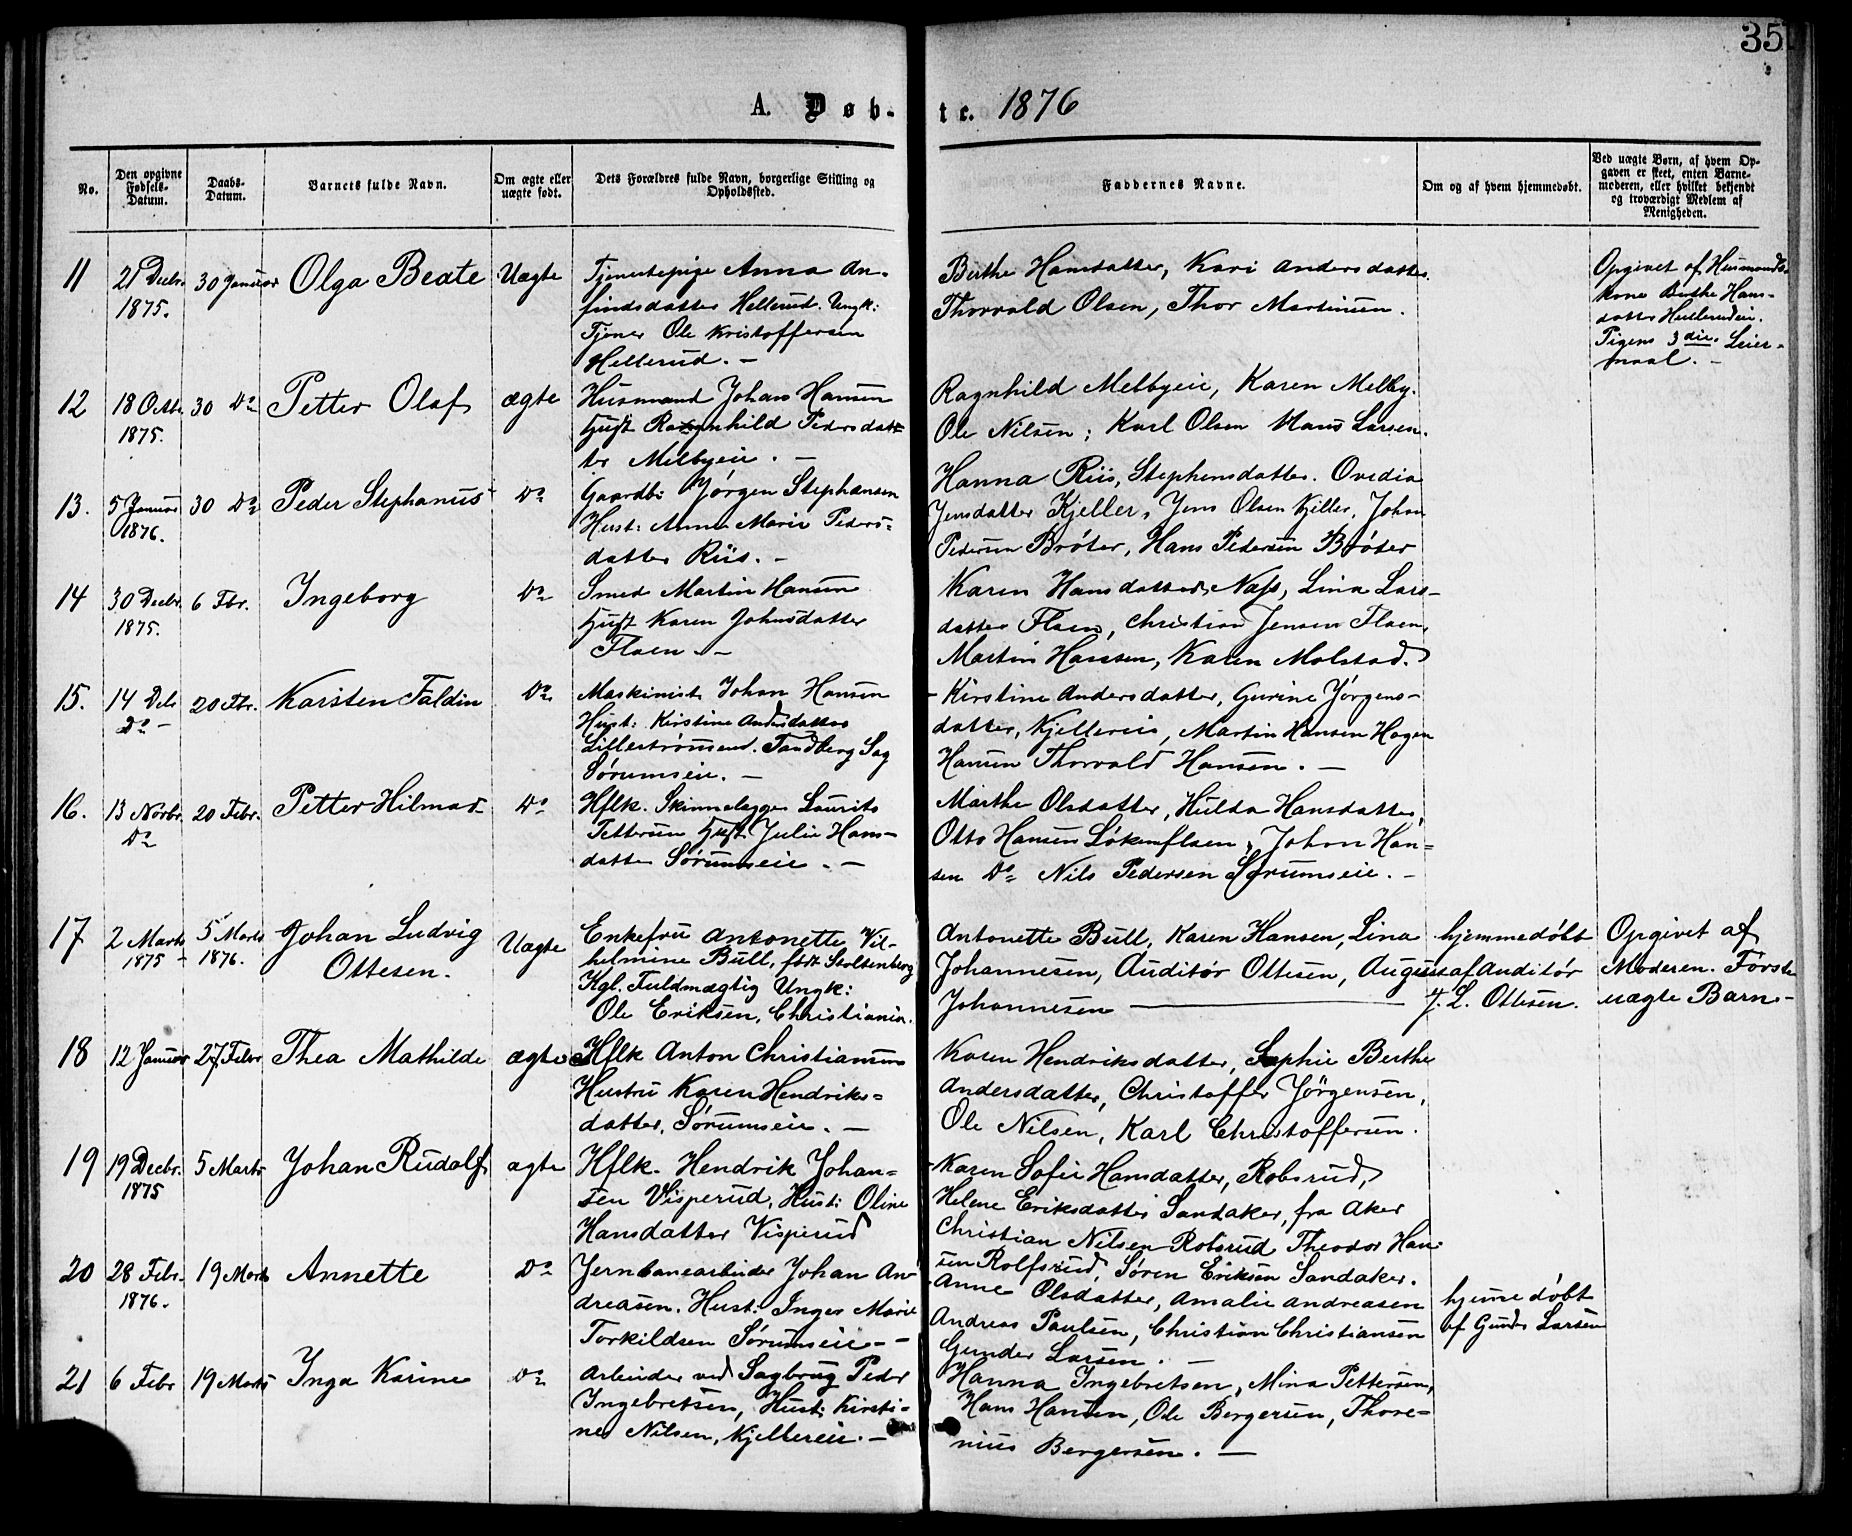 35
A. Døb-
te. 1876
No.
Den opgivne Fødsels-Datum.
Daabs-Datum.
Barnets fulde Navn.
Om ægte eller uægte født.
Dets Forældres fulde Navn, borgerlige Stilling og Opholdssted.
Faddernes Navne.
Om og af hvem hjemmedøbt.
Ved uægte Børn, af hvem Op-
gaven er skeet, enten Barne-
moderen, eller hvilket bekjendt
og troværdigt Medlem af
Menigheden.
11
21 Decbr.
1875.
30 Januar
Olga Beate
Uægte
Tjenestepige Anna An-
findsdatter Hellerud. Ungk:
Tjener Ole Kristoffersen
Hellerud. -
Berthe Hansdatter, Kari Andersdatter.
Thorvald Olsen, Thor Martinsen.
Opgivet af Husmands-
kone Berthe Hans-
datter Hellerudeie.
Pigens 3die Leier-
maal. -
12
18 Octbr
1875.
30 Do
Petter Olaf
ægte
Husmand Johan Hansen
Hust Ragnhild Pedersdat-
ter Melbyeie. -
Ragnhild Melbyeie, Karen Melby.
Ole Nilsen; Karl Olsen Hans Larsen.
13.
5 Januar
1876.
30 Do
Peder Stephanus
Do
Gaardb: Jørgen Stephansen
Hust: Anne Marie Peders-
datter Riis. -
Hanna Riis, Stephensdatter. Ovedia
Jensdatter Kjeller, Jens Olsen Kjeller, Johan
Pedersen Brøter, Hans Pedersen Brøter
14
30 Decbr.
1875.
6 Fbr.
Ingeborg
Do
Smed Martin Hansen
Hust Karen Johnsdatter
Flaen. -
Karen Hansdatter, Næss, Lina Lars-
datter Flaen, Christian Jensen Flaen,
Martin Hanssen, Karen Molstad.
15.
14 Dels
Do -
20 Fbr.
Karsten Faldin
Do
Maskinist Johan Hansen
Hust: Kirstine Andersdatter
Lillestrømmen. Tandberg Sag
Sørumseie. -
Kirstine Andersdatter, Gurine Jørgens-
datter, Kjellereie, Martin Hansen Hagen
Hansen Thorvald Hansen. -
16.
13 Novbr.
Do
20 Febr.
Petter Hilmar
Do
Hflk. Skinnelægger Laurits
Pettersen Hust Julie Hans-
datter Sørumseie. -
Marthe Olsdatter, Hulda Hansdatter,
Otto Hansen Løkenflaen, Johan Han-
sen Do Nils Pedersen Sørumseie. -
17
2 Marts
1875
5 Marts
1876.
Johan Ludvig
Ottesen.
Uægte
Enkefru Antonette Vil-
helmine Bull, født Stoltenberg
Kgl. Fuldmægtig Ungk:
Ole Eriksen, Christiania.
Antonette Bull, Karen Hansen, Lina
Johannesen, Auditør Ottesen, August
Johannesen
hjemmedøbt
af Auditør
J. L. Ottesen.
Opgivet af
Moderen. Første
uægte Barn -
18
12 Januar
27 Febr
Thea Mathilde
ægte
Hflk Anton Christiansen
Hustru Karen Hendriks-
datter, Sørumseie. -
Karen Hendriksdatter, Sophie Berthe
Andersdatter, Christoffer Jørgensen,
Ole Nilsen, Karl Christoffersen.
19
19 Decbr.
1875
5 Marts
Johan Rudolf
ægte
Hflk. Hendrik Johan-
sen Visperud, Hust: Oline
Hansdatter Visperud
Karen Sofie Hansdatter, Robsrud,
Helene Eriksdatter Sandaker, fra Aker
Christian Nilsen Robsrud Theodor Han-
sen Rolfsrud, Søren Eriksen Sandaker.
20
28 Febr.
1876.
19 Marts
Annette
Do
Jernbanearbeider Johan An-
dreasen. Hust: Inger Marie
Torkildsen Sørumseie -
Anne Olsdatter, Amalie Andreasen
Andreas Paulsen, Christian Christiansen
Gunder Larsen. -
hjemedøbt
af Gunder Larsen
21
6 Febr
19 Marts
Inga Karine
Do
Arbeider ved Sagbrug Peder
Ingebretsen, Hust: Kirsti-
ne Nilsen, Kjellereie. -
Hanna Ingebretsen, Mina Pettersen,
Hans Hansen, Ole Bergersen, Thore-
nius Bergersen. -